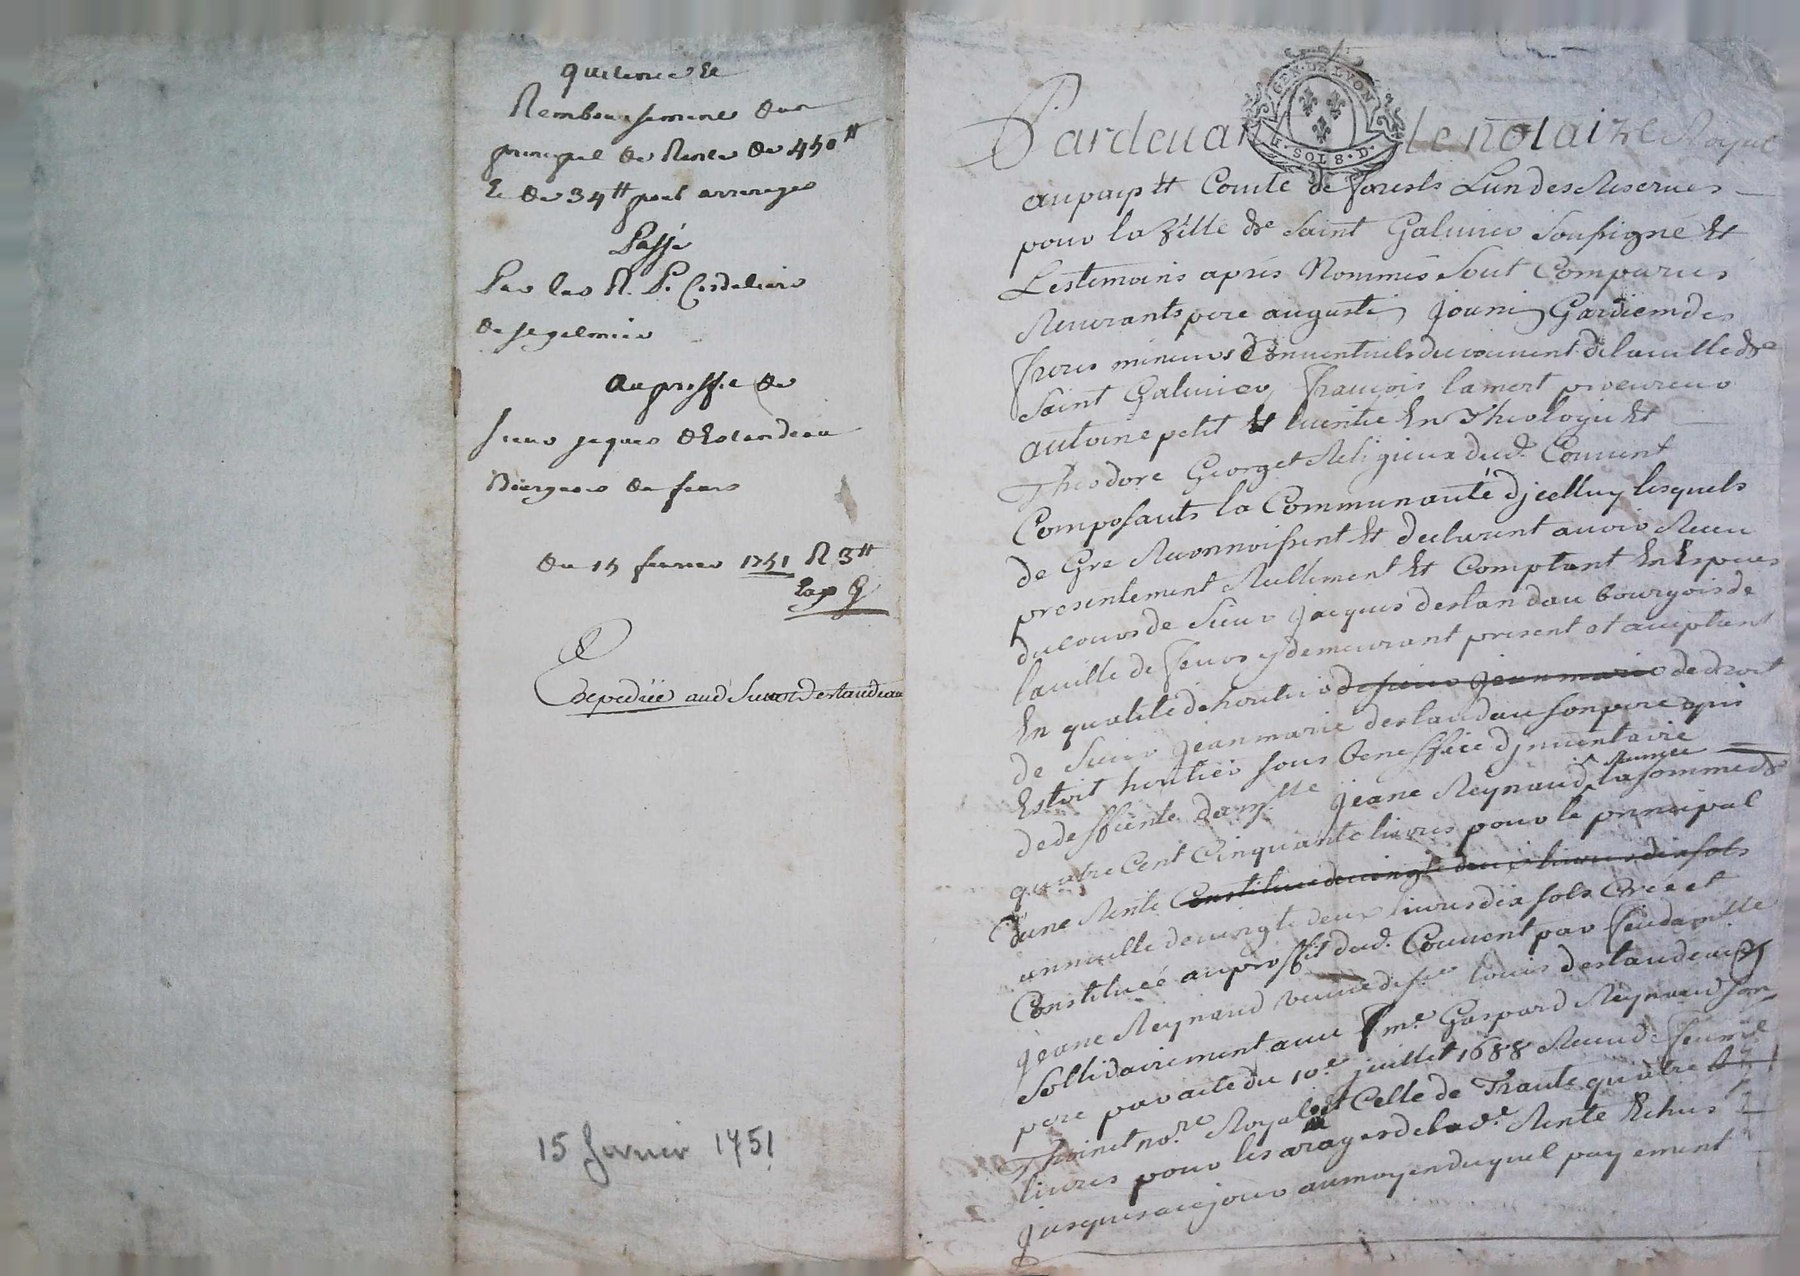 quittance et
Remboursement dun
principal de Rente de 450 ₶
Et de 34 ₶ pour arrerages
Passé
Par les R. P. Cordeliers
de st galmier
au proffit de
sieur jaques deslandeau
Bourgeois de feurs
du 15 fevrier 1751 R 3 ₶
Exp
Expediée aud Sieur Deslandeau
15 fevrier 1751
GEN. DE LYON
SOLS 8. D.
Pardevant le notaire Royal
au pays et Comté de forests Lun des Reserves
pour la Ville de Saint Galmier Soussigne Et
Les temoins aprés Nommés Sont Comparus
Reverants pere augustin Gardien des
freres mineurs Conventuels du couvent de la ville de
Saint Galmier, françois lamert procureur
antoine petit En Theologie Et
Theodore Georget Religieux dud. Couvent
Composants la Communauté djcelluy lesquels
de Gre Reconnoissent Et declarent avoir Receu
presentement Reellement Et Comptant En Especes
du cours de Sieur Jacques deslandau bourgois de
la ville de feurs y demeurant present et aceptant
En qualité de heritier de sieur Jean marie de droit
de Sieur Jean marie deslandau son pere qui
Estoit heritier sous beneffice djnventaire
de deffunte dam.lle Jeane Reynaud, la somme de
quatre Cent Cinquante livres pour le principal
dune Rente Constituee de vingt deux livres dix sols
annuelle de vingt deux livres dix sols Créé et
Constitueé au proffit dud. Couvent par feu damlle
Jeane Reynaud veuve de sr louis deslandeau
Sollidairement avec Gaspard Reynaud son
pere par acte du 10e juillet 1688 Receu de feu me
Thoinet no.re Royal et Celle de Trante quatre
livres pour les arages de lad.e Rente Echus
Jusques a ce jour au moyen du quel payement